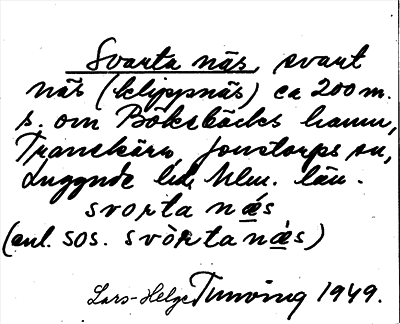 Svarta näs, svart
näs (klippnäs) ca 200 m.
s. om Böksbäcks hamn,
Tranekärr, Jonstorps sn,
Luggude hd, Mlm. län.
svorta næs
(enl. SOS. svòrtanæ̀s)
Lars-Helge Tunving 1949.